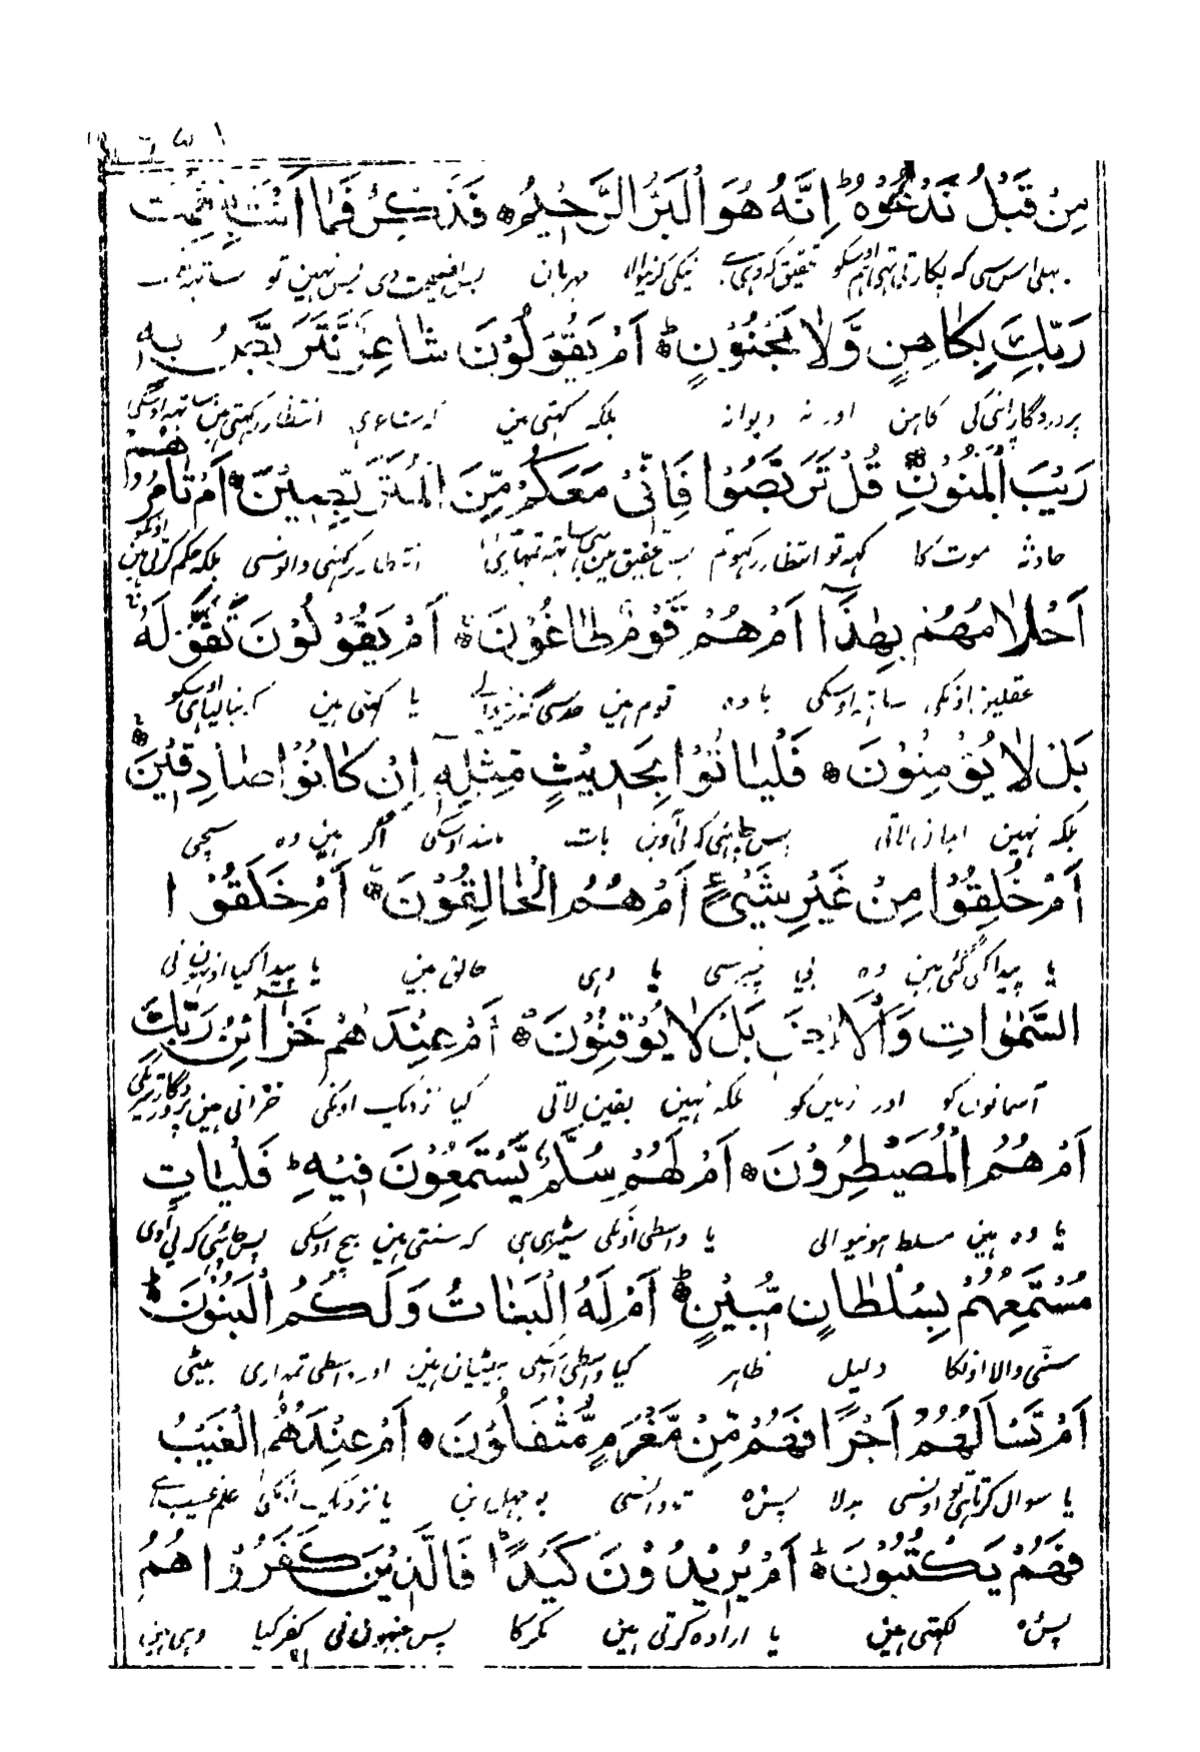 مِنْ قَبْلُ نَدْعُوْهُ ؕ اِنَّهٗ هُوَ الْبَرُّ الرَّحِيْمُ فَذَكِّرْ فَمَا اَنْتَ بِنِعْمَتِ
پہلی اس سی کہ پکارتی تہی ہم اوسکو تحقیق کہ وہی ہے نیکی کرنیوالا مہربان پس نصیحت دی پس نہین تو ساتھ
رَبِّكَ بِكَاهِنٍ وَّلَا مَجْنُوْنٍ ؕ اَمْ يَقُوْلُوْنَ شَاعِرٌ نَّتَرَبَّصُ بِهٖ
پروردگار اپنی کی کاہن اور نہ دیوانہ بلکہ کہتی ہین کہ شاعر ہی انتظار رکہتی ہین ساتہہ اوسکی
رَيْبَ الْمَنُوْنِ قُلْ تَرَبَّصُوْا فَاِنِّيْ مَعَكُمْ مِّنَ الْمُتَرَبِّصِيْنَ اَمْ تَاْمُرُهُمْ
حادثہ موت کا کہہ تو انتظار رکہو تم پس تحقیق مین بہی ساتہہ تمہاری انتظار رکہنی والونسی بلکہ حکم کرتی ہین اونکو
اَحْلَامُهُمْ بِهٰذَا اَمْ هُمْ قَوْمٌ طَاغُوْنَ اَمْ يَقُوْلُوْنَ تَقَوَّلَهٗ
عقلین اونکی ساتہہ اوسکی یا وہ قوم ہین حد سی گذرنیوالی یا کہتی ہین کہ بنالیا ہی اوسکو
بَلْ لَا يُؤْمِنُوْنَ فَلْيَاْتُوْا بِحَدِيْثٍ مِّثْلِهٖ اِنْ كَانُوْا صَادِقِيْنَ
بلکہ نہین ایمان لاتی پس چاہئی کہ لی آوین بات مانند اوسکی اگر ہین وہ سچی
اَمْ خُلِقُوْا مِنْ غَيْرِ شَيْءٍ اَمْ هُمُ الْخَالِقُوْنَ اَمْ خَلَقُوا
یا پیدا کی گئی ہین وہ چیز سی یا وہی خالق ہین یا پیدا کیا اونہون نی
السَّمٰوَاتِ وَالْاَرْضَ بَلْ لَا يُوْقِنُوْنَ اَمْ عِنْدَهُمْ خَزَائِنُ رَبِّكَ
آسمانون کو اور زمین کو بلکہ نہین یقین لاتی کیا نزدیک اونکی خزانی ہین پروردگار تیری کی
اَمْ هُمُ الْمُصَيْطِرُوْنَ اَمْ لَهُمْ سُلَّمٌ يَّسْتَمِعُوْنَ فِيْهِ ۚ فَلْيَاْتِ
یا وہ ہین مسلط ہونیوالی یا واسطی اونکی سیڑہی ہی کہ سنتی ہین بیچ اوسکی پس چاہئی کہ لی آوی
مُسْتَمِعُهُمْ بِسُلْطَانٍ مُّبِيْنٍ اَمْ لَهُ الْبَنَاتُ وَلَكُمُ الْبَنُوْنَ
سننی والا اونکا دلیل ظاہر کیا واسطی اوسکی بیٹیان ہین اور واسطی تمہاری بیٹی
اَمْ تَسْاَلُهُمْ اَجْرًا فَهُمْ مِّنْ مَّغْرَمٍ مُّثْقَلُوْنَ اَمْ عِنْدَهُمُ الْغَيْبُ
یا سوال کرتا ہی تو اونسی بدلا پس وہ تاوانسی بوجہل ہین یا نزدیک اونکی علم غیب ہے
فَهُمْ يَكْتُبُوْنَ ؕ اَمْ يُرِيْدُوْنَ كَيْدًا ؕ فَالَّذِيْنَ كَفَرُوْا هُمُ
پس وہ لکہتی ہین یا ارادہ کرتی ہین مکر کا پس جنہون نی کفر کیا وہی ہین